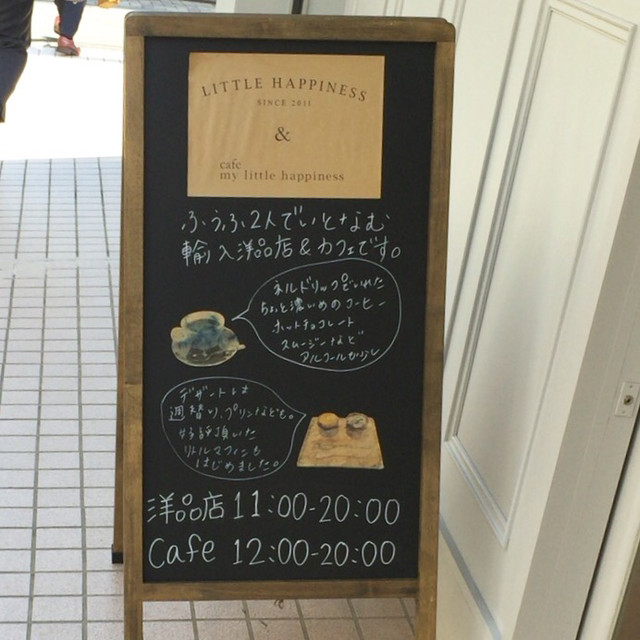 LITTLE HAPPINESS
SINCE 2011
&
cafe
my little happiness
ふうふ2人でいとなむ
輸入洋品店&カフェです。
ネルドリップでいれた
ちょっと濃いめのコーヒー
ホットチョコレート
スムージーなど
アルコールも少し
デザートは
週替り、プリンなども。
好評頂いた
リトルマフィンも
はじめました。
洋品店 11:00-20:00
Cafe 12:00-20:00